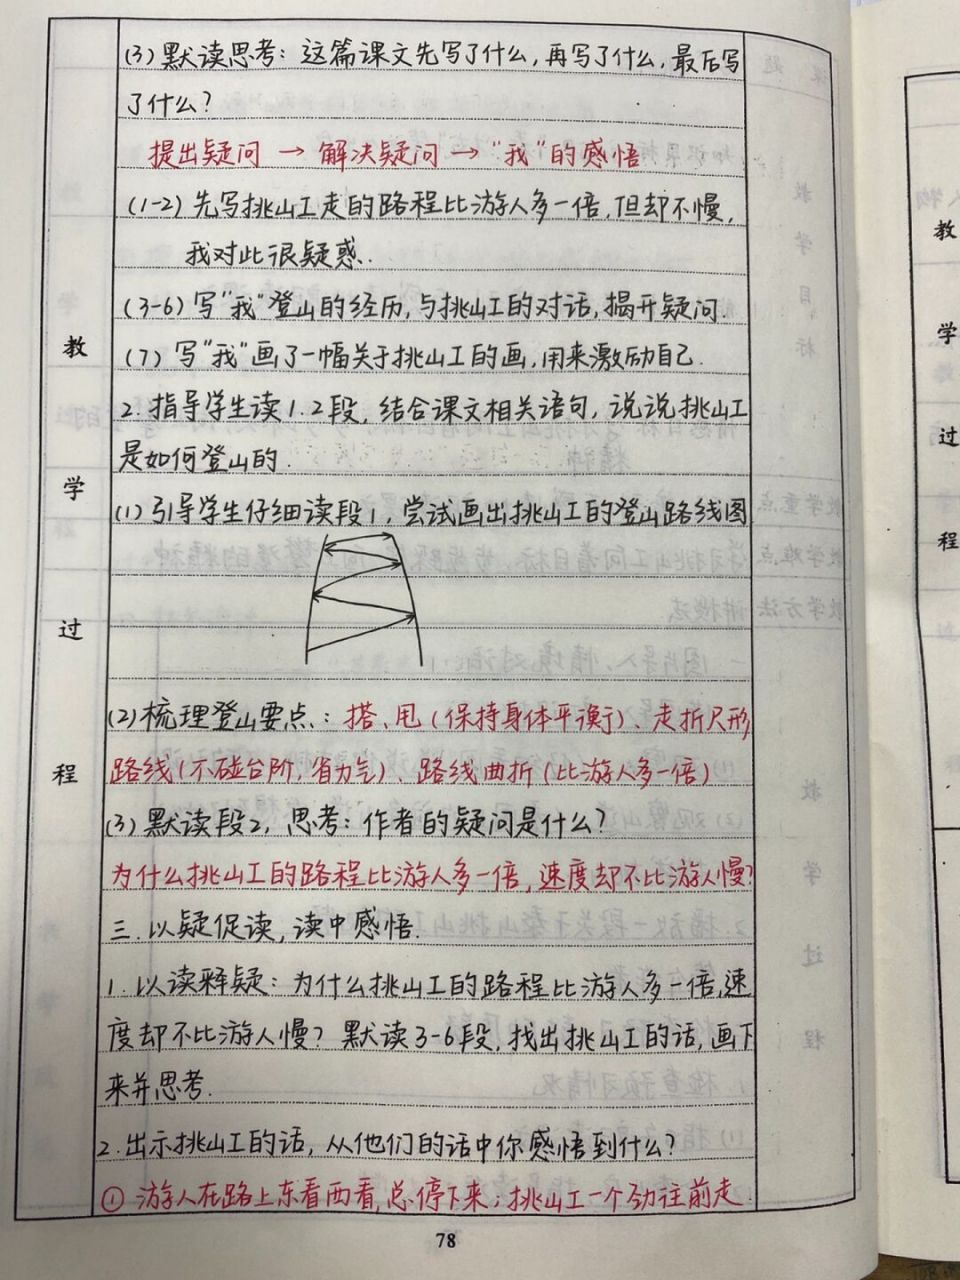 (3) 默读思考：这篇课文先写了什么，再写了什么，最后写
了什么？
提出疑问 → 解决疑问 → "我"的感悟
(1-2) 先写挑山工走的路程比游人多一倍，但却不慢，
我对此很疑惑.
(3-6) 写"我"登山的经历，与挑山工的对话，揭开疑问.
(7) 写"我"画了一幅关于挑山工的画，用来激励自己.
2. 指导学生读1.2段，结合课文相关语句，说说挑山工
是如何登山的.
(1) 引导学生仔细读段1，尝试画出挑山工的登山路线图
(2) 梳理登山要点：搭、甩（保持身体平衡）、走折尺形
路线（不碰台阶，省力气）、路线曲折（比游人多一倍）
(3) 默读段2，思考：作者的疑问是什么？
为什么挑山工的路程比游人多一倍，速度却不比游人慢？
三. 以疑促读，读中感悟.
1. 以读释疑：为什么挑山工的路程比游人多一倍，速
度却不比游人慢？默读3-6段，找出挑山工的话，画下
来并思考.
2. 出示挑山工的话，从他们的话中你感悟到什么？
① 游人在路上东看西看，总停下来；挑山工一个劲往前走
教
学
过
程
78
教
学
过
程